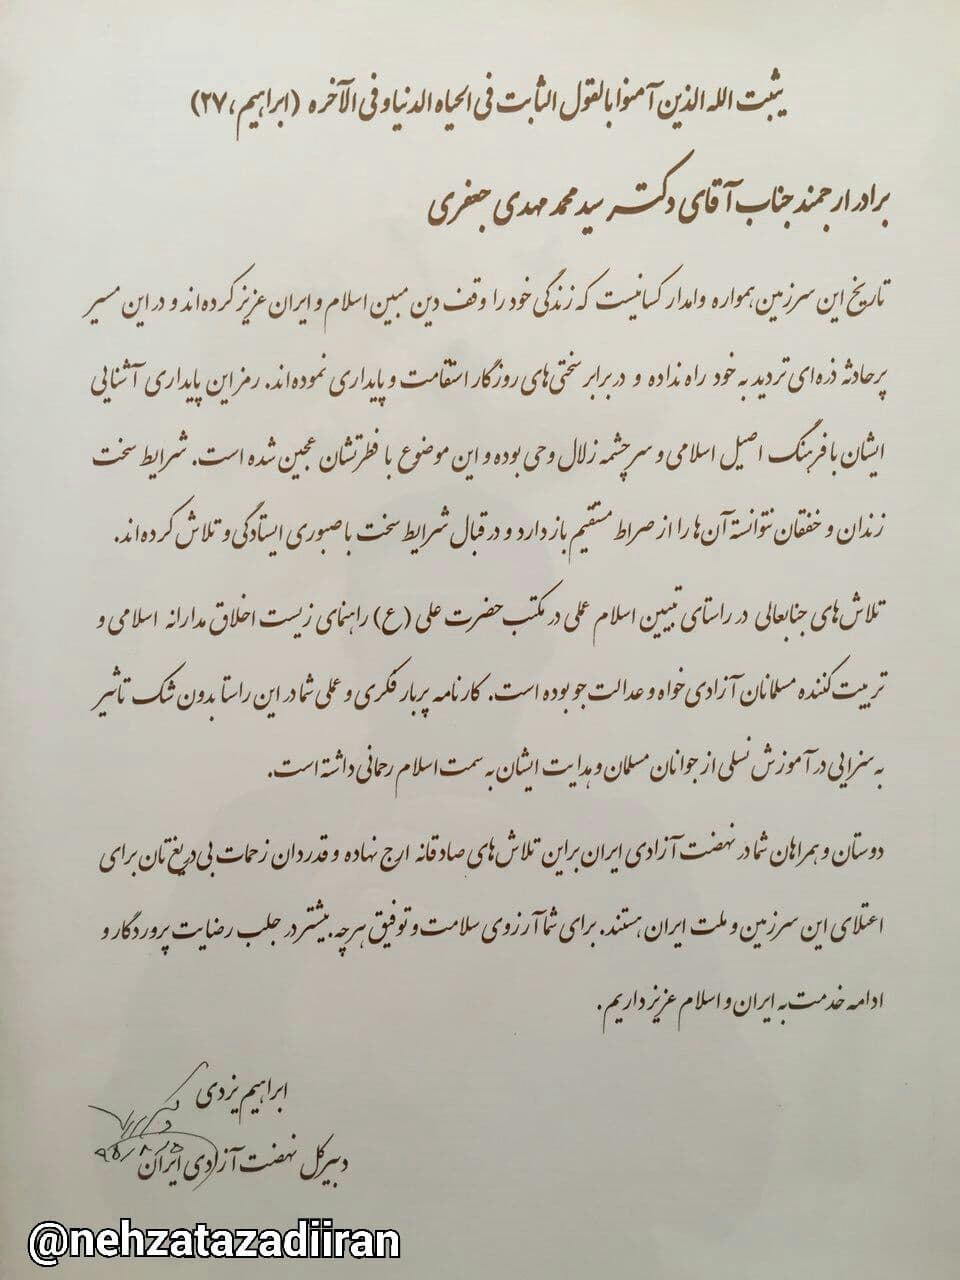 یثبت الله الذین آمنوا بالقول الثابت فی الحیاه الدنیا و فی الآخره (ابراهیم، ۲۷)
برادر ارجمند جناب آقای دکتر سید محمد مهدی جعفری
تاریخ این سرزمین همواره وامدار کسانیست که زندگی خود را وقف دین مبین اسلام و ایران عزیز کرده‌اند و در این مسیر
پرحادثه ذره‌ای تردید به خود راه نداده و در برابر سختی‌های روزگار استقامت و پایداری نموده‌اند. رمز این پایداری آشنایی
ایشان با فرهنگ اصیل اسلامی و سرچشمه زلال وحی بوده و این موضوع با فطرتشان عجین شده است. شرایط سخت
زندان و خفقان نتوانسته آن‌ها را از صراط مستقیم باز دارد و در قبال شرایط سخت با صبوری ایستادگی و تلاش کرده‌اند.
تلاش‌های جنابعالی در راستای تبیین اسلام عملی در مکتب حضرت علی (ع) راهنمای زیست اخلاق مدارانه اسلامی و
تربیت کننده مسلمانان آزادی خواه و عدالت جو بوده است. کارنامه پربار فکری و عملی شما در این راستا بدون شک تاثیر
به سزایی در آموزش نسلی از جوانان مسلمان و هدایت ایشان به سمت اسلام رحمانی داشته است.
دوستان و همراهان شما در نهضت آزادی ایران بر این تلاش‌های صادقانه ارج نهاده و قدردان زحمات بی‌دریغ‌تان برای
اعتلای این سرزمین و ملت ایران هستند. برای شما آرزوی سلامت و توفیق هرچه بیشتر در جلب رضایت پروردگار و
ادامه خدمت به ایران و اسلام عزیز داریم.
ابراهیم یزدی
دبیرکل نهضت آزادی ایران
@nehzatazadiiran